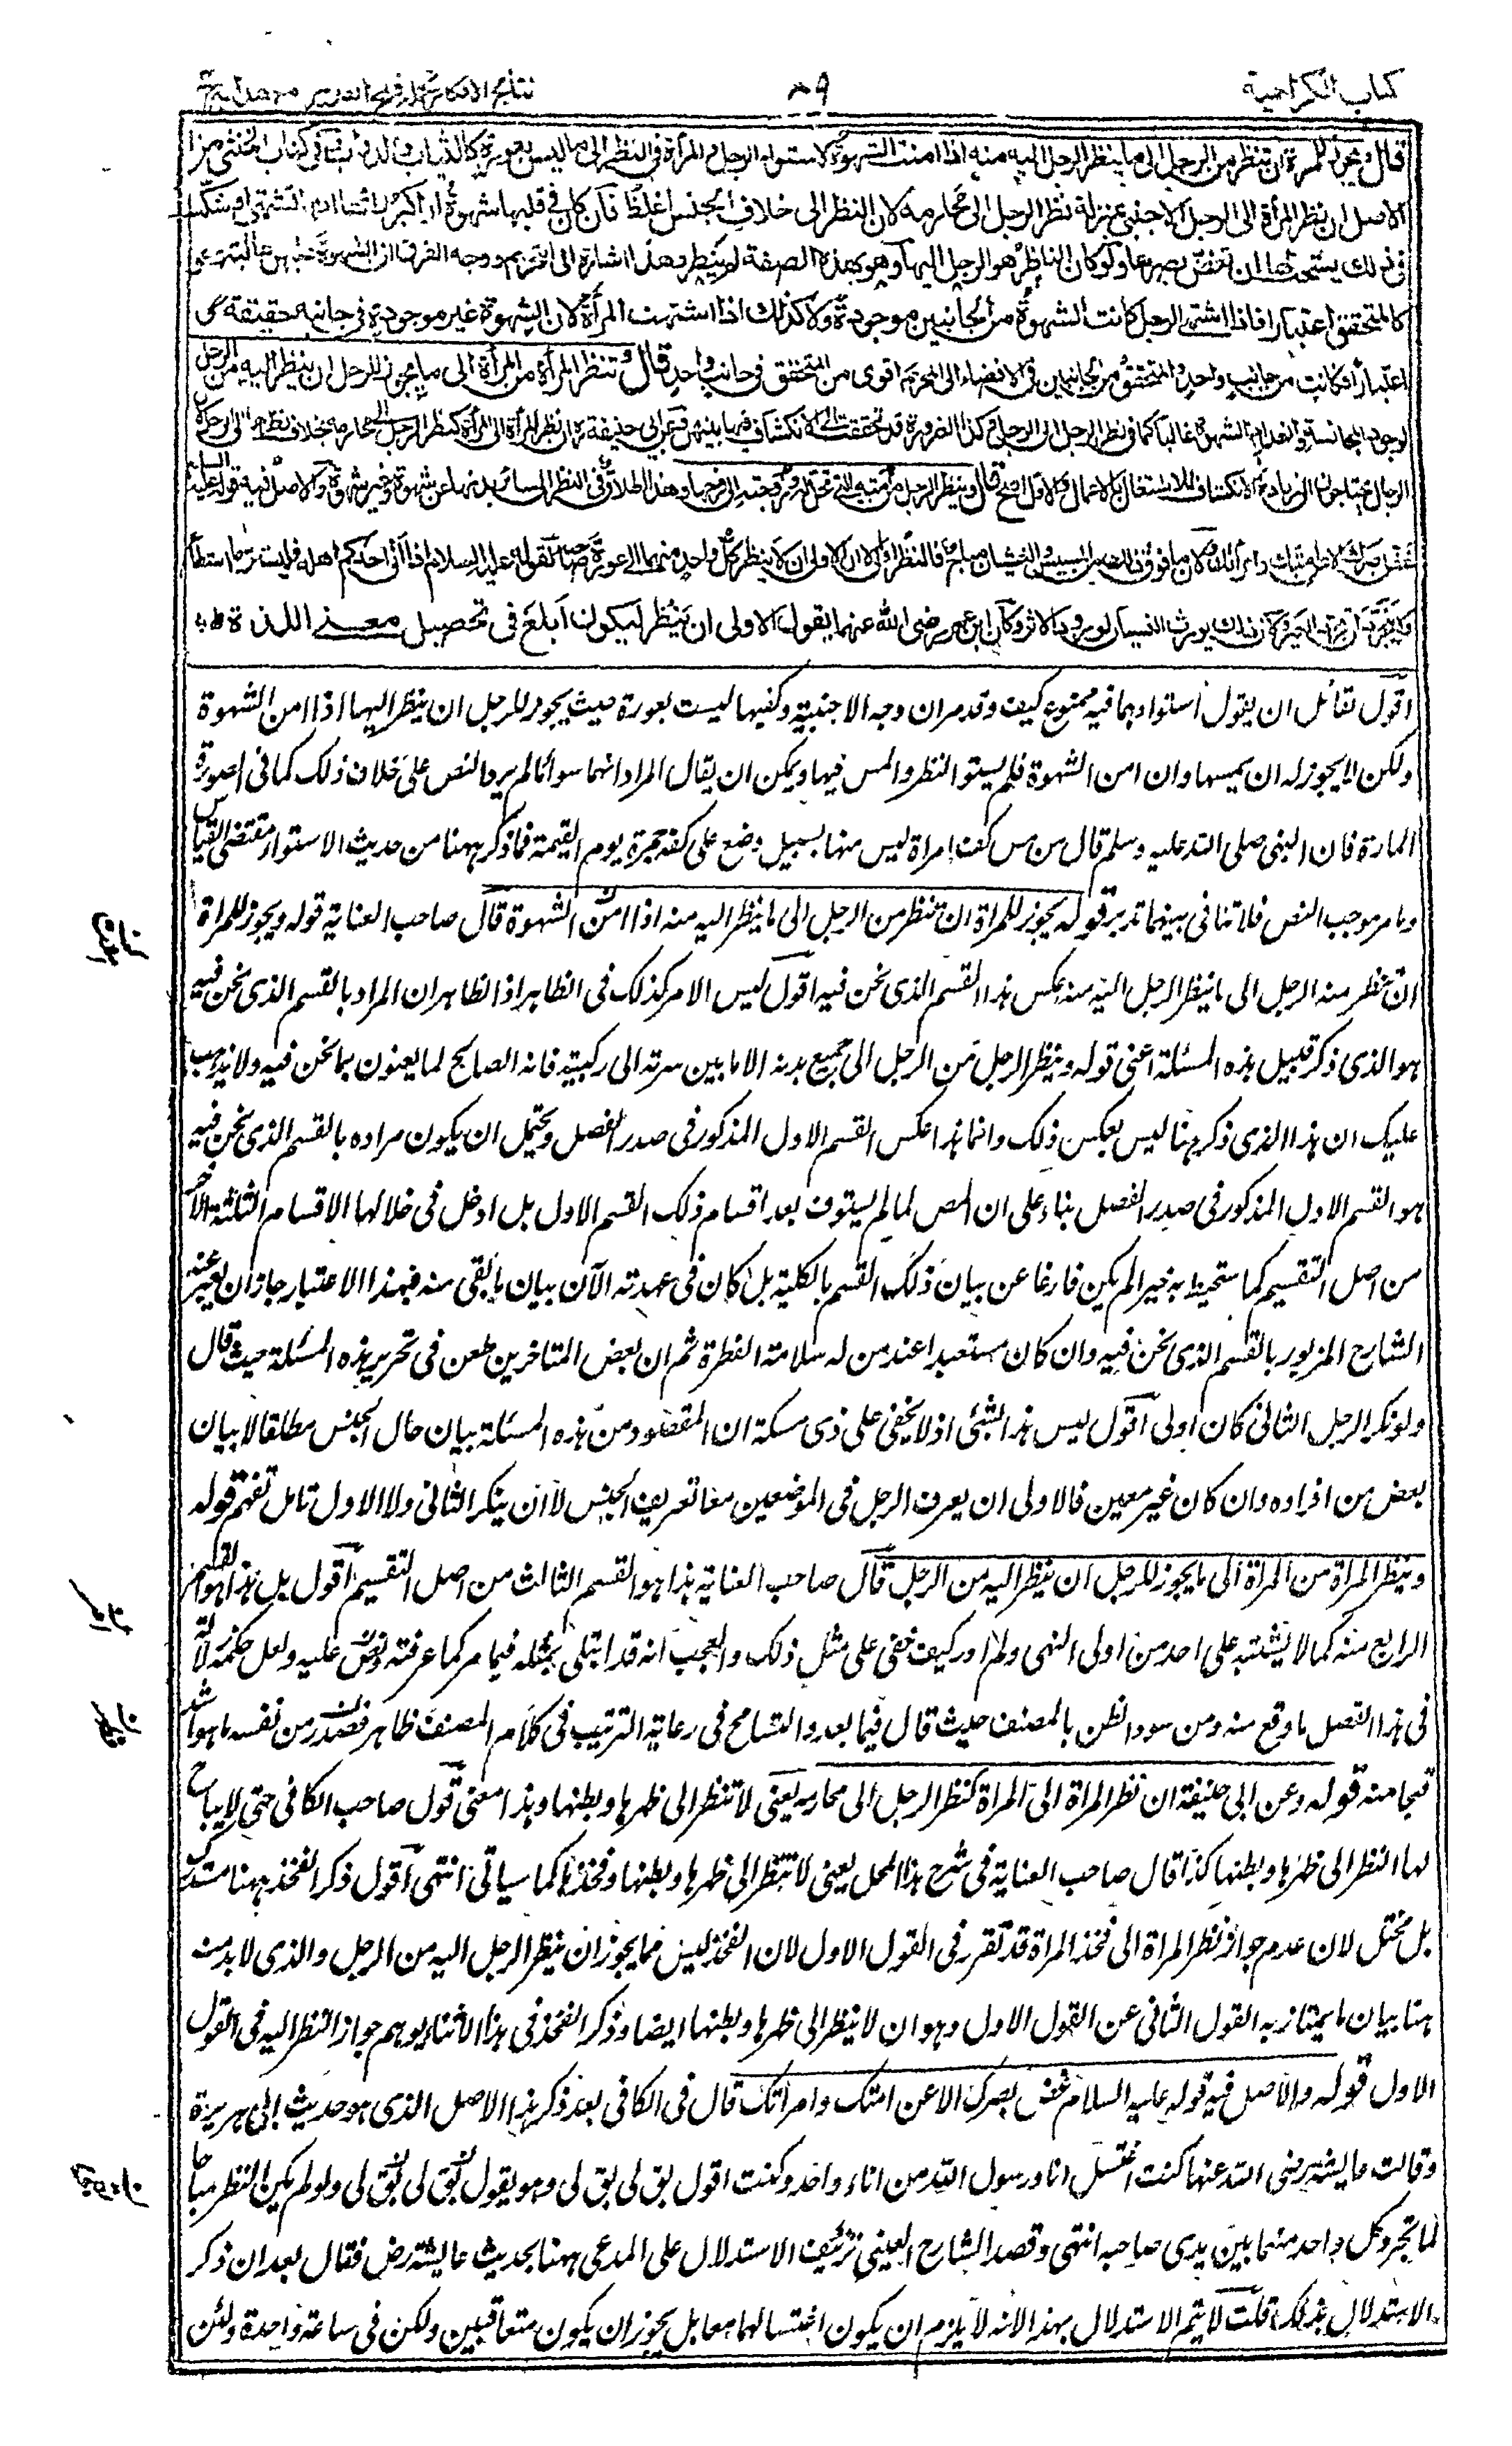 كتاب الكراهية
٨٩
نتائج الافكار تكملة فتح القدير مع هداية
قال ويجوز للمرأة ان تنظر من الرجل الى ما ينظر الرجل اليه منه اذا امنت الشهوة لاستواء الرجل والمرأة فى النظر الى ما ليس بعورة كالثياب والدواب وفى كتاب الخنثى من
الاصل ان نظر المرأة الى الرجل الاجنبى بمنزلة نظر الرجل الى محارمه لان النظر الى خلاف الجنس اغلظ فان كان فى قلبها شهوة او اكبر رأيها انها تشتهى او شكت
فى ذلك يستحب لها ان تغض بصرها ولو كان الناظر هو الرجل اليها وهو بهذه الصفة لم ينظر وهذا اشارة الى التحريم ووجه الفرق ان الشهوة عليهن غالبة وهو
كالمتحقق اعتبارا فاذا اشتهى الرجل كانت الشهوة من الجانبين موجودة ولا كذلك اذا اشتهت المرأة لان الشهوة غير موجودة فى جانبه حقيقة و
اعتبارا فكانت من جانب واحد والمتحقق من الجانبين فى الافضاء الى المحرم اقوى من المتحقق فى جانب واحد قال وتنظر المرأة من المرأة الى ما يجوز للرجل ان ينظر اليه من الرجل
لوجود المجانسة وانعدام الشهوة غالبا كما فى نظر الرجل الى الرجل وكذا الضرورة قد تحققت الى الانكشاف فيما بينهن وعن ابى حنيفة ره ان نظر المرأة الى المرأة كنظر الرجل الى محارمه بخلاف نظرها الى الرجل لان
الرجال يحتاجون الى زيادة الانكشاف للاشتغال بالاعمال والاول اصح قال وينظر الرجل من امته التى تحل له وزوجته الى فرجها وهذا اطلاق فى النظر الى سائر بدنها عن شهوة وغير شهوة والاصل فيه قوله عليه السلام
غض بصرك الا عن امتك وامرأتك ولان ما فوق ذلك من المسيس والغشيان مباح فالنظر اولى الا ان الاولى ان لا ينظر كل واحد منهما الى عورة صاحبه لقوله عليه السلام اذا اتى احدكم اهله فليستتر ما استطاع
ولا يتجردان تجرد العير ولان ذلك يورث النسيان لورود الاثر وكان ابن عمر رضى الله عنهما يقول الاولى ان ينظر ليكون ابلغ فى تحصيل معنى اللذة
اقول لقائل ان يقول استواؤهما فيه ممنوع كيف وقد مر ان وجه الاجنبية وكفيها ليست بعورة حيث يجوز للرجل ان ينظر اليها اذا امن الشهوة
ولكن لا يجوز له ان يمسها وان امن الشهوة فلم يستو النظر والمس فيها ويمكن ان يقال المراد انهما سواء ما لم يرد النص على خلاف ذلك كما فى الصورة
المارة فان النبى صلى الله عليه وسلم قال من مس كف امرأة ليس منها بسبيل وضع على كفه جمرة يوم القيمة فما ذكر ههنا من حديث الاستواء مقتضى القياس
وما مر موجب النص فلا تنافى بينهما تدبر قوله يجوز للمراة ان تنظر من الرجل الى ما ينظر اليه منه اذا امنت الشهوة قال صاحب العناية قوله ويجوز للمراة
ان تنظر منه الرجل الى ما ينظر الرجل اليه منه عكس هذا القسم الذى نحن فيه اقول ليس الامر كذلك فى الظاهر اذ الظاهر ان المراد بالقسم الذى نحن فيه
هو الذى ذكر قبيل هذه المسئلة اعنى قوله وينظر الرجل من الرجل الى جميع بدنه الا ما بين سرته الى ركبته فانه الصالح لما يعنون بما نحن فيه ولا يذهب
عليك ان هذا الذى ذكر ههنا ليس بعكس ذلك وانما هذا عكس القسم الاول المذكور فى صدر الفصل ويحتمل ان يكون مراده بالقسم الذى نحن فيه
هو القسم الاول المذكور فى صدر الفصل بناء على ان المص لما لم يستوف بعد اقسام ذلك القسم الاول بل ادخل فى خلالها الاقسام الثلثة الاخر
من اصل التقسيم كما ستحيط به خبرا لم يكن فارغا عن بيان ذلك القسم بالكلية بل كان فى عهدته الآن بيان ما بقى منه فبهذا الاعتبار جاز ان يعبر عنه
الشارح المزبور بالقسم الذى نحن فيه وان كان مستبعدا عند من له سلامة الفطرة ثم ان بعض المتاخرين طعن فى تحرير هذه المسئلة حيث قال
ولو نكر الرجل الثانى كان اولى اقول ليس هذا بشئ اذ لا يخفى على ذى مسكة ان المقصود من هذه المسئلة بيان حال الجنس مطلقا لا بيان
بعض من افراده وان كان غير معين فالاولى ان يعرف الرجل فى الموضعين معا تعريف الجنس لا ان ينكر الثانى ولا الاول تامل تفهم قوله
وينظر المراة من المراة الى ما يجوز للرجل ان ينظر اليه من الرجل قال صاحب العناية هذا هو القسم الثالث من اصل التقسيم اقول بل هذا هو القسم
الرابع منه كما لا يشتبه على احد من اولى النهى ولم ادر كيف خفى على مثل ذلك والعجب انه قد ابتلى بمثله فيما مر كما عرفته ونص عليه ولعل حكمة الله
فى هذا الفصل ما وقع منه ومن سوء الظن بالمصنف حيث قال فيما بعد والتسامح فى رعاية الترتيب فى كلام المصنف ظاهر فصدر من نفسه ما هو اشد
قبحا منه قوله وعن ابى حنيفة ان نظر المراة الى المراة كنظر الرجل الى محارمه يعنى لا تنظر الى ظهرها وبطنها وهذا معنى قول صاحب الكافى حتى لا يباح
لها النظر الى ظهرها وبطنها كذا قال صاحب العناية فى شرح هذا المحل يعنى لا تنظر الى ظهرها وبطنها وفخذها كما سياتى انتهى اقول ذكر الفخذ ههنا مستدرك
بل مختل لان عدم جواز نظر المراة الى فخذ المراة قد تقرر فى القول الاول لان الفخذ ليس مما يجوز ان ينظر الرجل اليه من الرجل والذى لا بد منه
ههنا بيان ما يمتاز به القول الثانى عن القول الاول وهو ان لا ينظر الى ظهرها وبطنها ايضا وذكر الفخذ فى هذا الاثناء يوهم جواز النظر اليه فى القول
الاول قوله والاصل فيه قوله عليه السلام غض بصرك الا عن امتك وامراتك قال فى الكافى بعد ذكر هذا الاصل الذى هو حديث ابى هريرة
وقالت عايشة رضى الله عنها كنت اغتسل انا ورسول الله من اناء واحد وكنت اقول بق لى بق لى وهو يقول بق لى بق لى ولو لم يكن النظر مباحا
لما تجرد كل واحد منهما بين يدى صاحبه انتهى وقصد الشارح العينى تزئيف الاستدلال على المدعى ههنا بحديث عايشة رض فقال بعد ان ذكر
الاستدلال بذلك قلت لا يتم الاستدلال بهذا لانه لا يلزم ان يكون اغتسالهما معا بل يجوز ان يكون متعاقبين ولكن فى ساعة واحدة ولئن